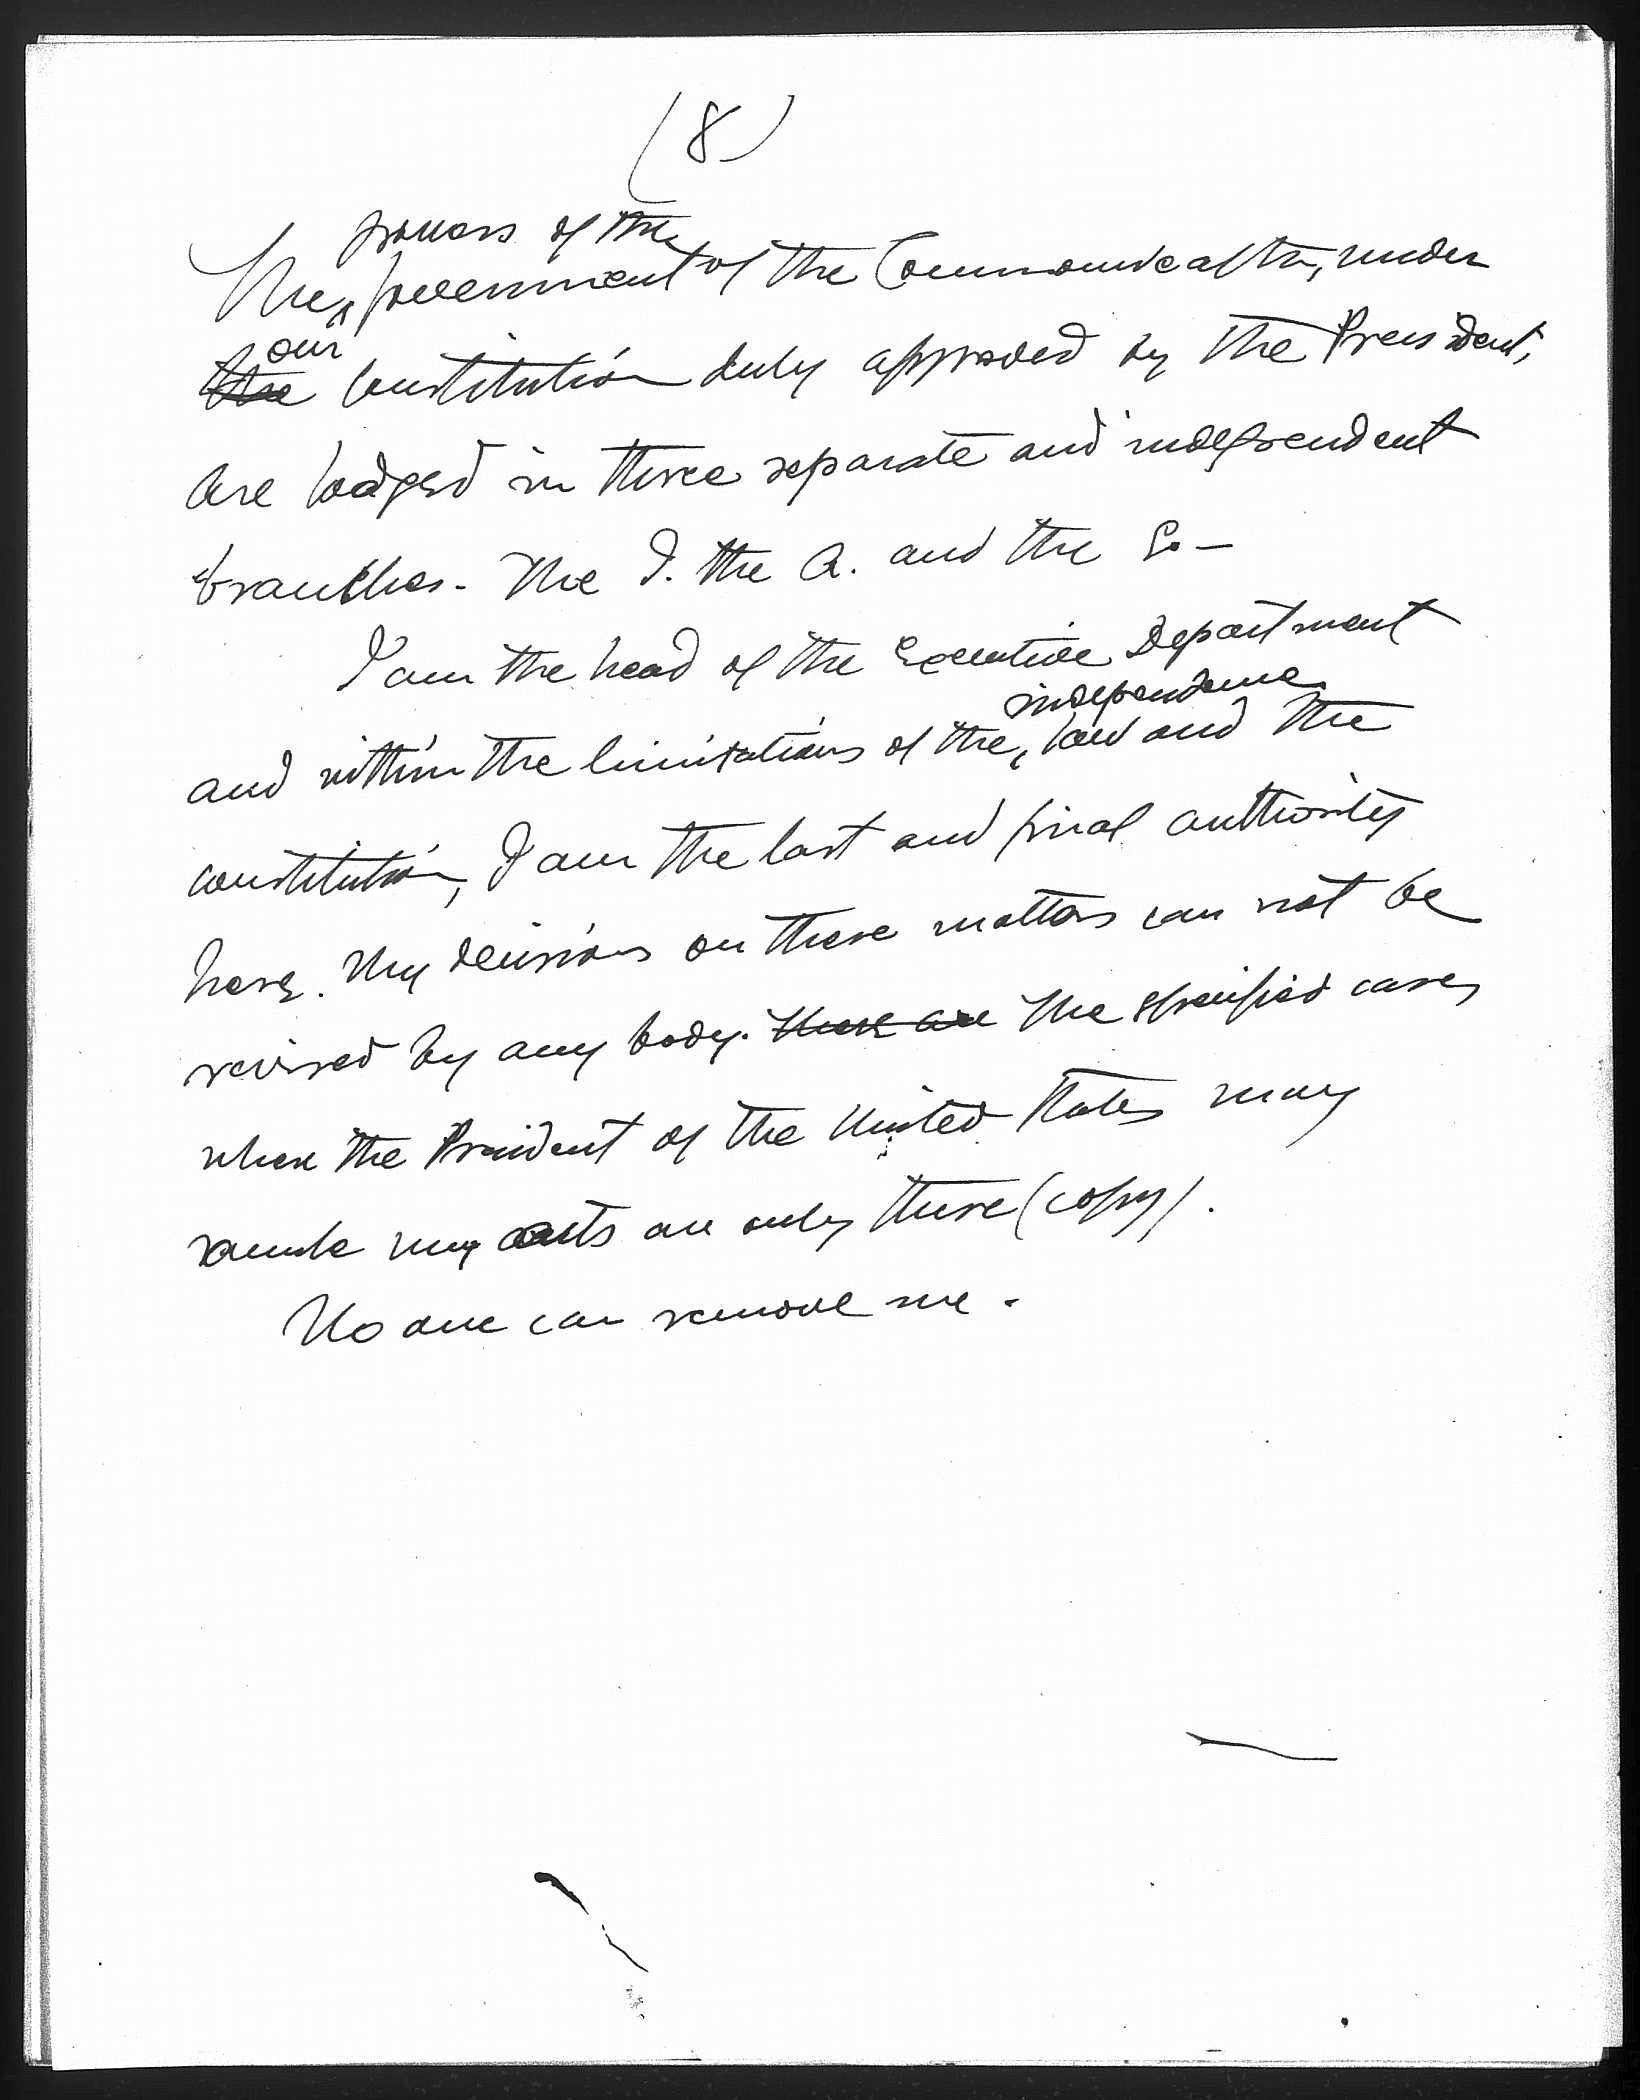 (8)
powers of the
The government of the Commonwealth, under
our
the constitution duly approved by the President,
are lodged in three separate and independent
branches - The J. the A. and the
I am the head of the Executive Department
independence
and within the limitations of the, law and the
constitution, I am the last and final authority
here. My decisions on these matters can not be
revised by any body. There are The specified cases
where the President of the United States may
my acts are only these (copy).
No one can remove me.